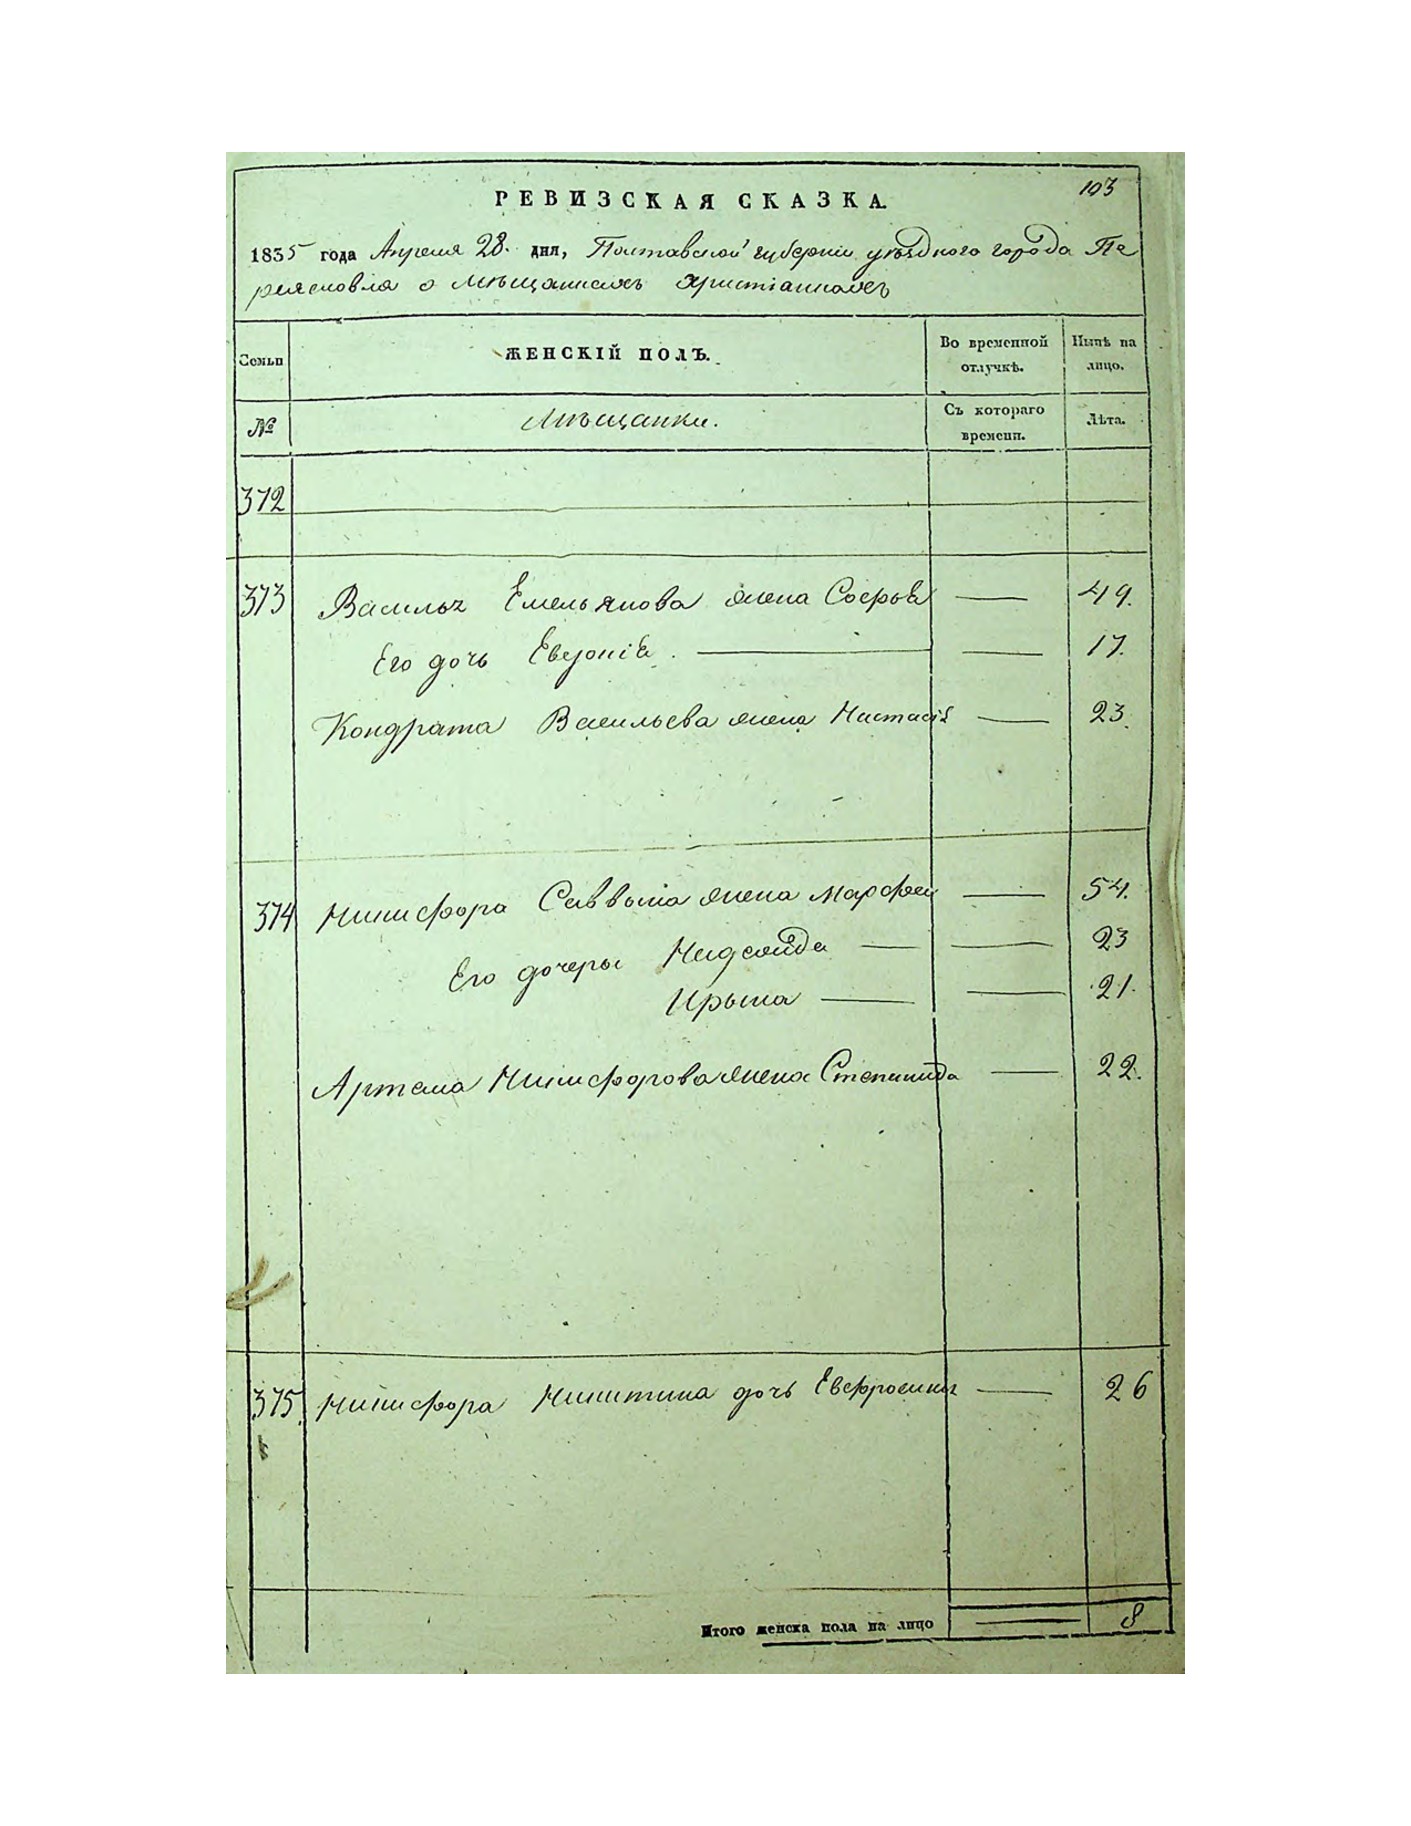 103
РЕВИЗСКАЯ СКАЗКА.
1835 года Апреля 28. дня, Полтавской губерніи уѣзднаго города Пе
реяславля о мѣщанахъ христіанахъ
Семьи
ЖЕНСКІЙ ПОЛЪ.
Во временной отлучкѣ.
Нынѣ на лицо.
№
Мѣщанки.
Съ котораго времени.
Лѣта.
372
373 Василья Емельянова жена Софья — 49.
Его дочь Евгенія. — 17.
Кондрата Васильева жена Настасія — 23.
374 Никифора Саввина жена Марфа — 54.
Его дочеры — 23
Ирына — 21.
Артема Никифорова жена Степанида — 22.
375 Никифора Никитина дочь Евфросинія — 26
Итого женска пола на лицо — 8